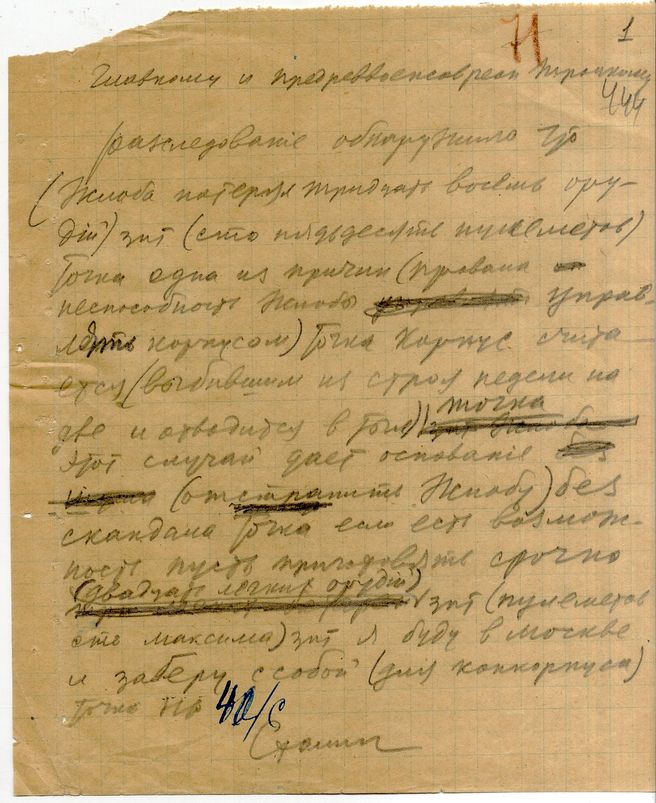 71
1
Главкому и предреввоенсовресп Троцкому
444
расследование обнаружило что
(Жлоба потерял тридцать восемь ору-
дий) зпт (сто пядьдесять пулеметов)
точка одна из причин (провала
неспособность Жлобы управ-
лять корпусом) точка Корпус счита-
ется (выбившим из строя недели на
две и отводится в тыл) точка
Этот случай дает основание
(отстранить Жлобу) без
скандала точка если есть возмож-
ность пусть приготовять срочно
(двадцать легких орудий)
зпт (пулеметов
сто максима) зпт я буду в Москве
и заберу с собой (для конкорпуса)
точка Нр 40/с
Сталин